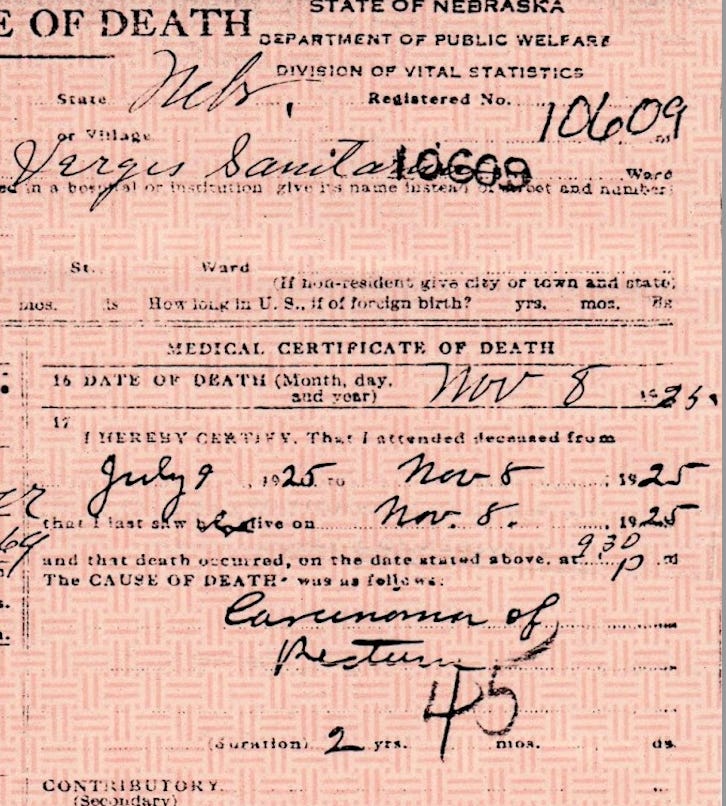 E OF DEATH
STATE OF NEBRASKA
DEPARTMENT OF PUBLIC WELFARE
DIVISION OF VITAL STATISTICS
State Nebr. Registered No. 10609
or Village
Verges 10609 Ward
ed in a hospital or institution give its name instead of street and number)
St. Ward
(If non-resident give city or town and state)
mos. How long in U. S., if of foreign birth? yrs. mos.
MEDICAL CERTIFICATE OF DEATH
16 DATE OF DEATH (Month, day, and year) Nov 8 1925.
17
I HEREBY CERTIFY, That I attended deceased from
July 9, 1925 to Nov 8, 1925
that I last saw alive on Nov. 8. 1925
and that death occurred, on the date stated above, at 9.30 P m
The CAUSE OF DEATH* was as follows:
Carcinoma of
Rectum
45
(duration) 2 yrs. mos. ds.
CONTRIBUTORY
(Secondary)